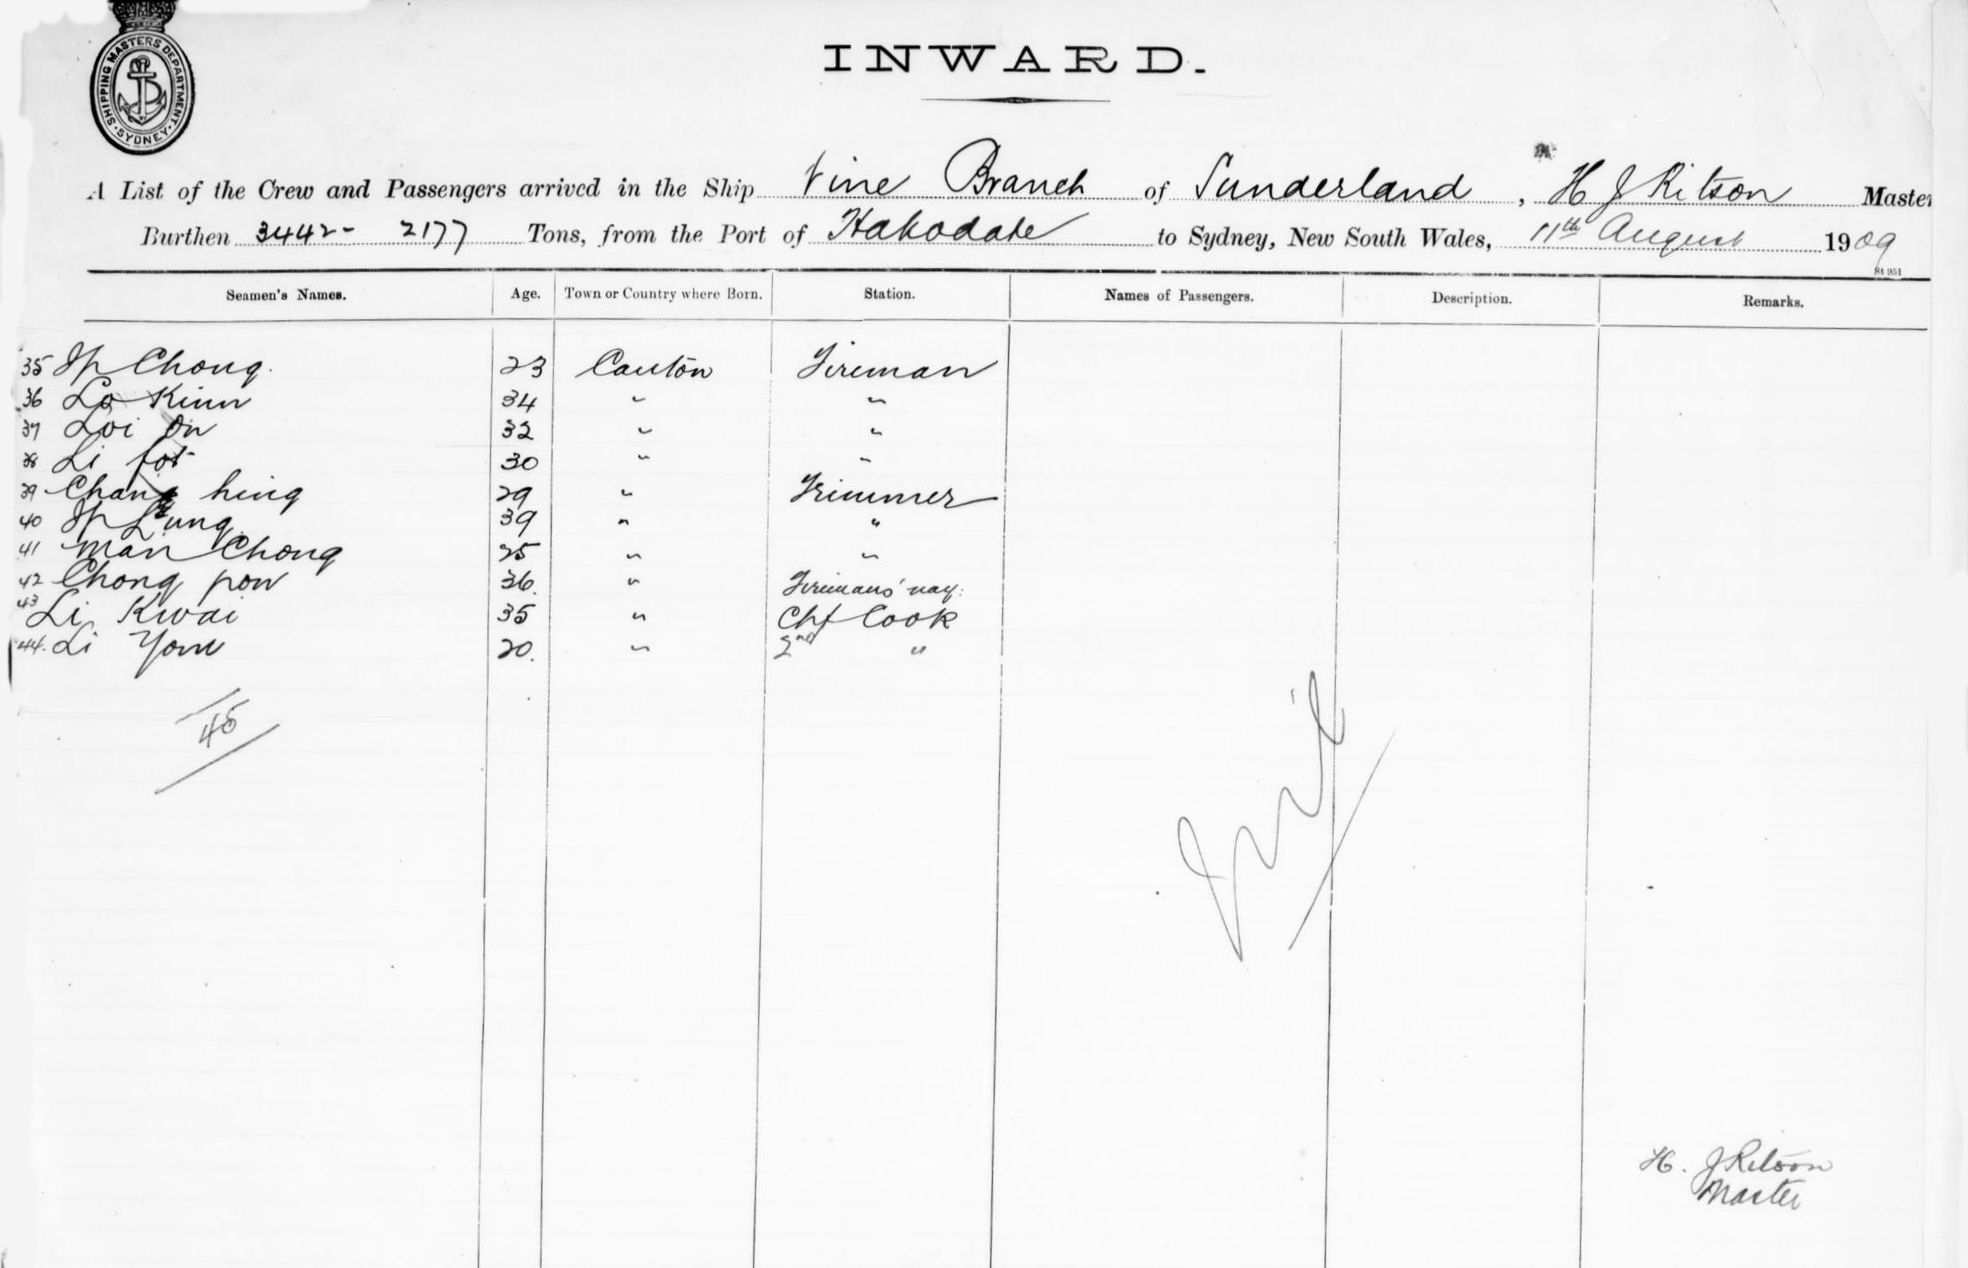 SHIPPING MASTERS DEPARTMENT. SYDNEY.
INWARD.
A List of the Crew and Passengers arrived in the Ship Vine Branch of Sunderland, H J Ritson Master
Burthen 3442 - 2177 Tons, from the Port of Hakodate to Sydney, New South Wales, 11th August 1909
St 951
Seamen's Names. Age. Town or Country where Born. Station. Names of Passengers. Description. Remarks.
35 Ip Chong. 23 Canton Fireman
36 Lo Kinn 34 " "
37 Loi On 32 " "
38 Li fot 30 " "
39 Chang hing 29 " Trimmer
40 Ip Lung 39 " "
41 Man Chong 25 " "
42 Chong pow 36. " Firemans'
43 Li Kwai 35 " Chf Cook
44. Li Yow 20. " 2nd "
45
Nil
H. J Ritson
Master